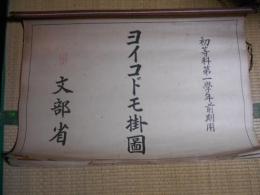 初等科第一學年前期用
ヨイコドモ掛圖
文部省